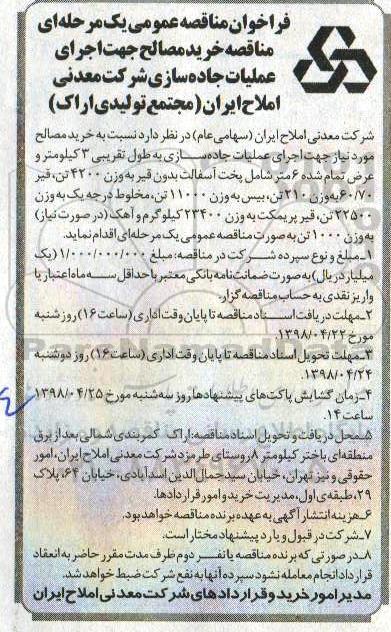 فراخوان مناقصه عمومی یک مرحله‌ای
مناقصه خرید مصالح جهت اجرای
عملیات جاده سازی شرکت معدنی
املاح ایران (مجتمع تولیدی اراک)
شرکت معدنی املاح ایران (سهامی عام) در نظر دارد نسبت به خرید مصالح
مورد نیاز جهت اجرای عملیات جاده‌ســازی به طول تقریبی ۳ کیلومتر و
عرض تمام شده ۶ متر شامل پخت آسفالت بدون قیر به وزن ۴۲۰۰ تن، قیر
۶۰/۷۰ به وزن ۲۱۰ تن، بیس به وزن ۱۱۰۰۰ تن، مخلوط درجه یک به وزن
۲۲۵۰۰ تن، قیر پریمکت به وزن ۲۳۴۰۰ کیلوگرم و آهک (در صورت نیاز)
به وزن ۱۰۰۰ تن به صورت مناقصه عمومی یک مرحله‌ای اقدام نماید.
۱ـ مبلغ و نوع سپرده شــرکت در مناقصه: مبلغ ۱/۰۰۰/۰۰۰/۰۰۰ (یک
میلیارد ریال) به صورت ضمانت‌نامه بانکی معتبر با حداقل ســه ماه اعتبار یا
واریز نقدی به حساب مناقصه گزار.
۲ـ مهلت دریافت اســناد مناقصه تا پایان وقت اداری (ساعت ۱۶) روز شنبه
مورخ ۱۳۹۸/۰۴/۲۲
۳ـ مهلت تحویل اسناد مناقصه تا پایان وقت اداری (ساعت ۱۶) روز دوشنبه
۱۳۹۸/۰۴/۲۴.
۴ـ زمان گشایش پاکت‌های پیشنهادها روز سه‌شنبه مورخ ۱۳۹۸/۰۴/۲۵
ساعت ۱۴.
۵ـ محل دریافت و تحویل اسناد مناقصه: اراک کمربندی شمالی بعد از برق
منطقه‌ای باختر کیلومتر ۸ روستای طرمزد شرکت معدنی املاح ایران، امور
حقوقی و نیز تهران، خیابان سید جمال‌الدین اسدآبادی، خیابان ۶۴، پلاک
۲۹، طبقه‌ی اول، مدیریت خرید و امور قراردادها.
۶ـ هزینه انتشار آگهی به عهده برنده مناقصه خواهد بود.
۷ـ شرکت در قبول و یا رد پیشنهاد مختار است.
۸ـ در صورتی که برنده مناقصه یا نفــر دوم ظرف مدت مقرر حاضر به انعقاد
قرارداد انجام معامله نشود سپرده آنها به نفع شرکت ضبط خواهد شد.
مدیر امور خرید و قراردادهای شرکت معدنی املاح ایران